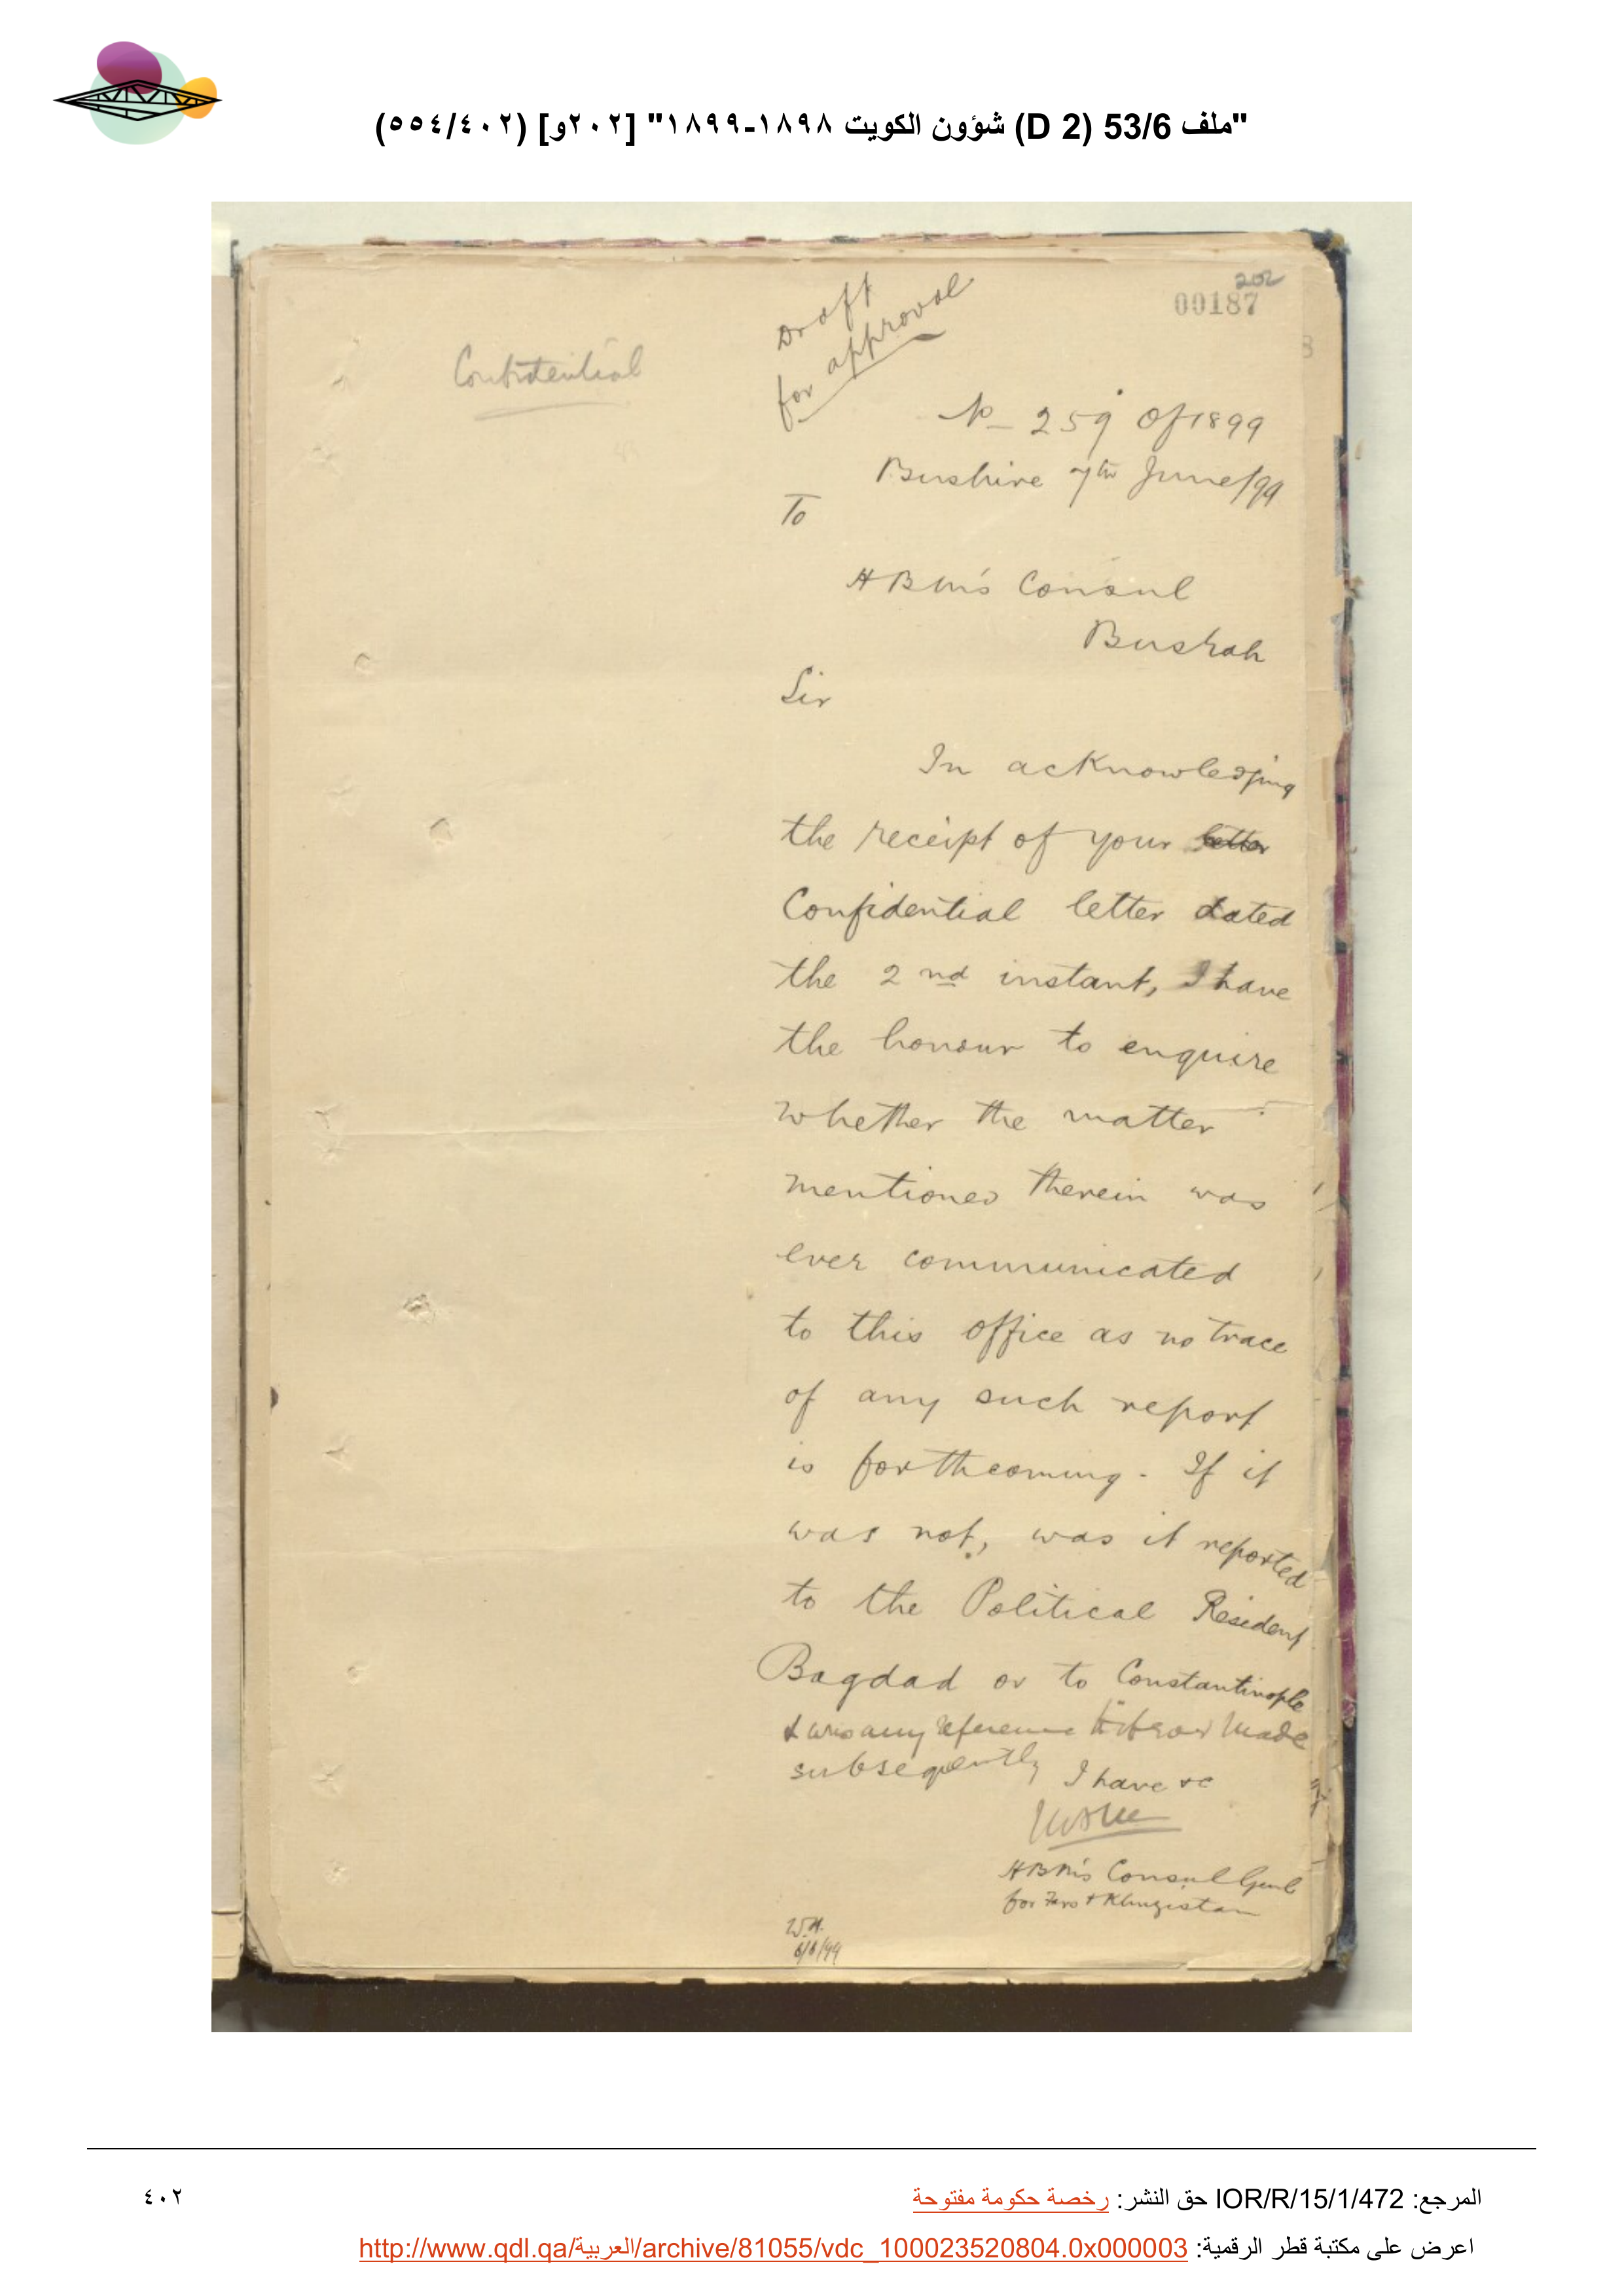 "ملف 53/6 (D 2) شؤون الكويت ١٨٩٨-١٨٩٩" [٢٠٢و] (٥٥٤/٤٠٢)
202
00187
Draft
for approval
Confidential
No 259 of 1899
Bushire 7th June/99
To
HBM's Consul
Busrah
Sir
In acknowledging
the receipt of your letter
Confidential letter dated
the 2nd instant, I have
the honour to enquire
whether the matter
mentioned therein was
ever communicated
to this office as no trace
of any such report
is forthcoming. If it
was not, was it reported
to the Political Resident
Bagdad or to Constantinople
& was any reference made
subseqently I have &c
HBM's Consul Genl
for Fars & Khuzistan
6/6/99
المرجع: IOR/R/15/1/472 حق النشر: رخصة حكومة مفتوحة
٤٠٢
اعرض على مكتبة قطر الرقمية: http://www.qdl.qa/العربية/archive/81055/vdc_100023520804.0x000003